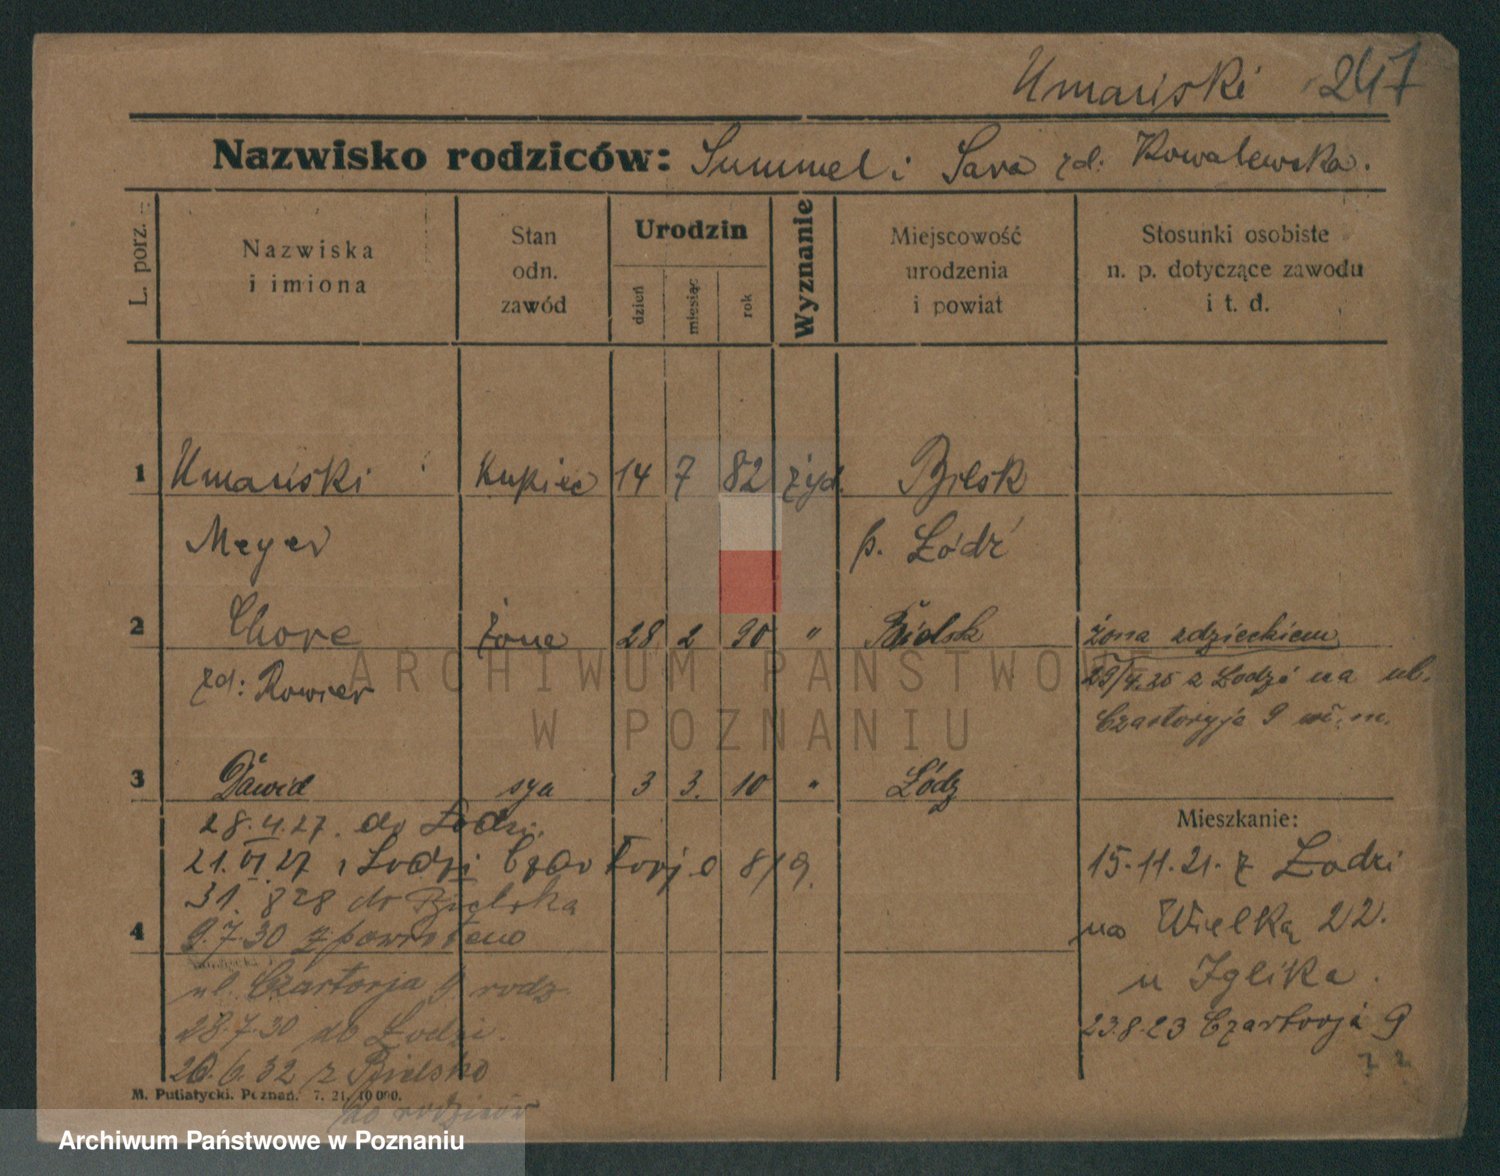 Umański 247
Nazwisko rodziców: Summel i Sara zd: Kowalewska.
L. porz.
Nazwiska i imiona
Stan odn. zawód
Urodzin
dzień
miesiąc
rok
Wyznanie
Miejscowość urodzenia i powiat
Stosunki osobiste n. p. dotyczące zawodu i t. d.
1 Umański Kupiec 14 7 82 żyd. Bilsk
Meyer p. Łódź
2 Chore żona 28 2 90 " Bielsk żona z dzieckiem
zd: 25/4.25 z Lodzi na ul.
Czartoryja 9 m.
3 Dawid syn 3 3. 10 " Łódz
28.4.27. do Lodzi.
Mieszkanie:
21.VI.27 z Lodzi Czartorja 8/9.
15.11.21. z Łodzi
31. 8 28 do Bielska
na Wielką 22.
4 9.7.30 z powrotem
u Iglika.
ul. Czartorja 9 rodz.
23.8.23 Czartorja 9
28.7.30 do Lodzi.
20.6.32 z Bielska
M. Putiatycki. Poznań. 7. 21. 10 000.
do rodziców
ARCHIWUM PAŃSTWOWE
W POZNANIU
Archiwum Państwowe w Poznaniu